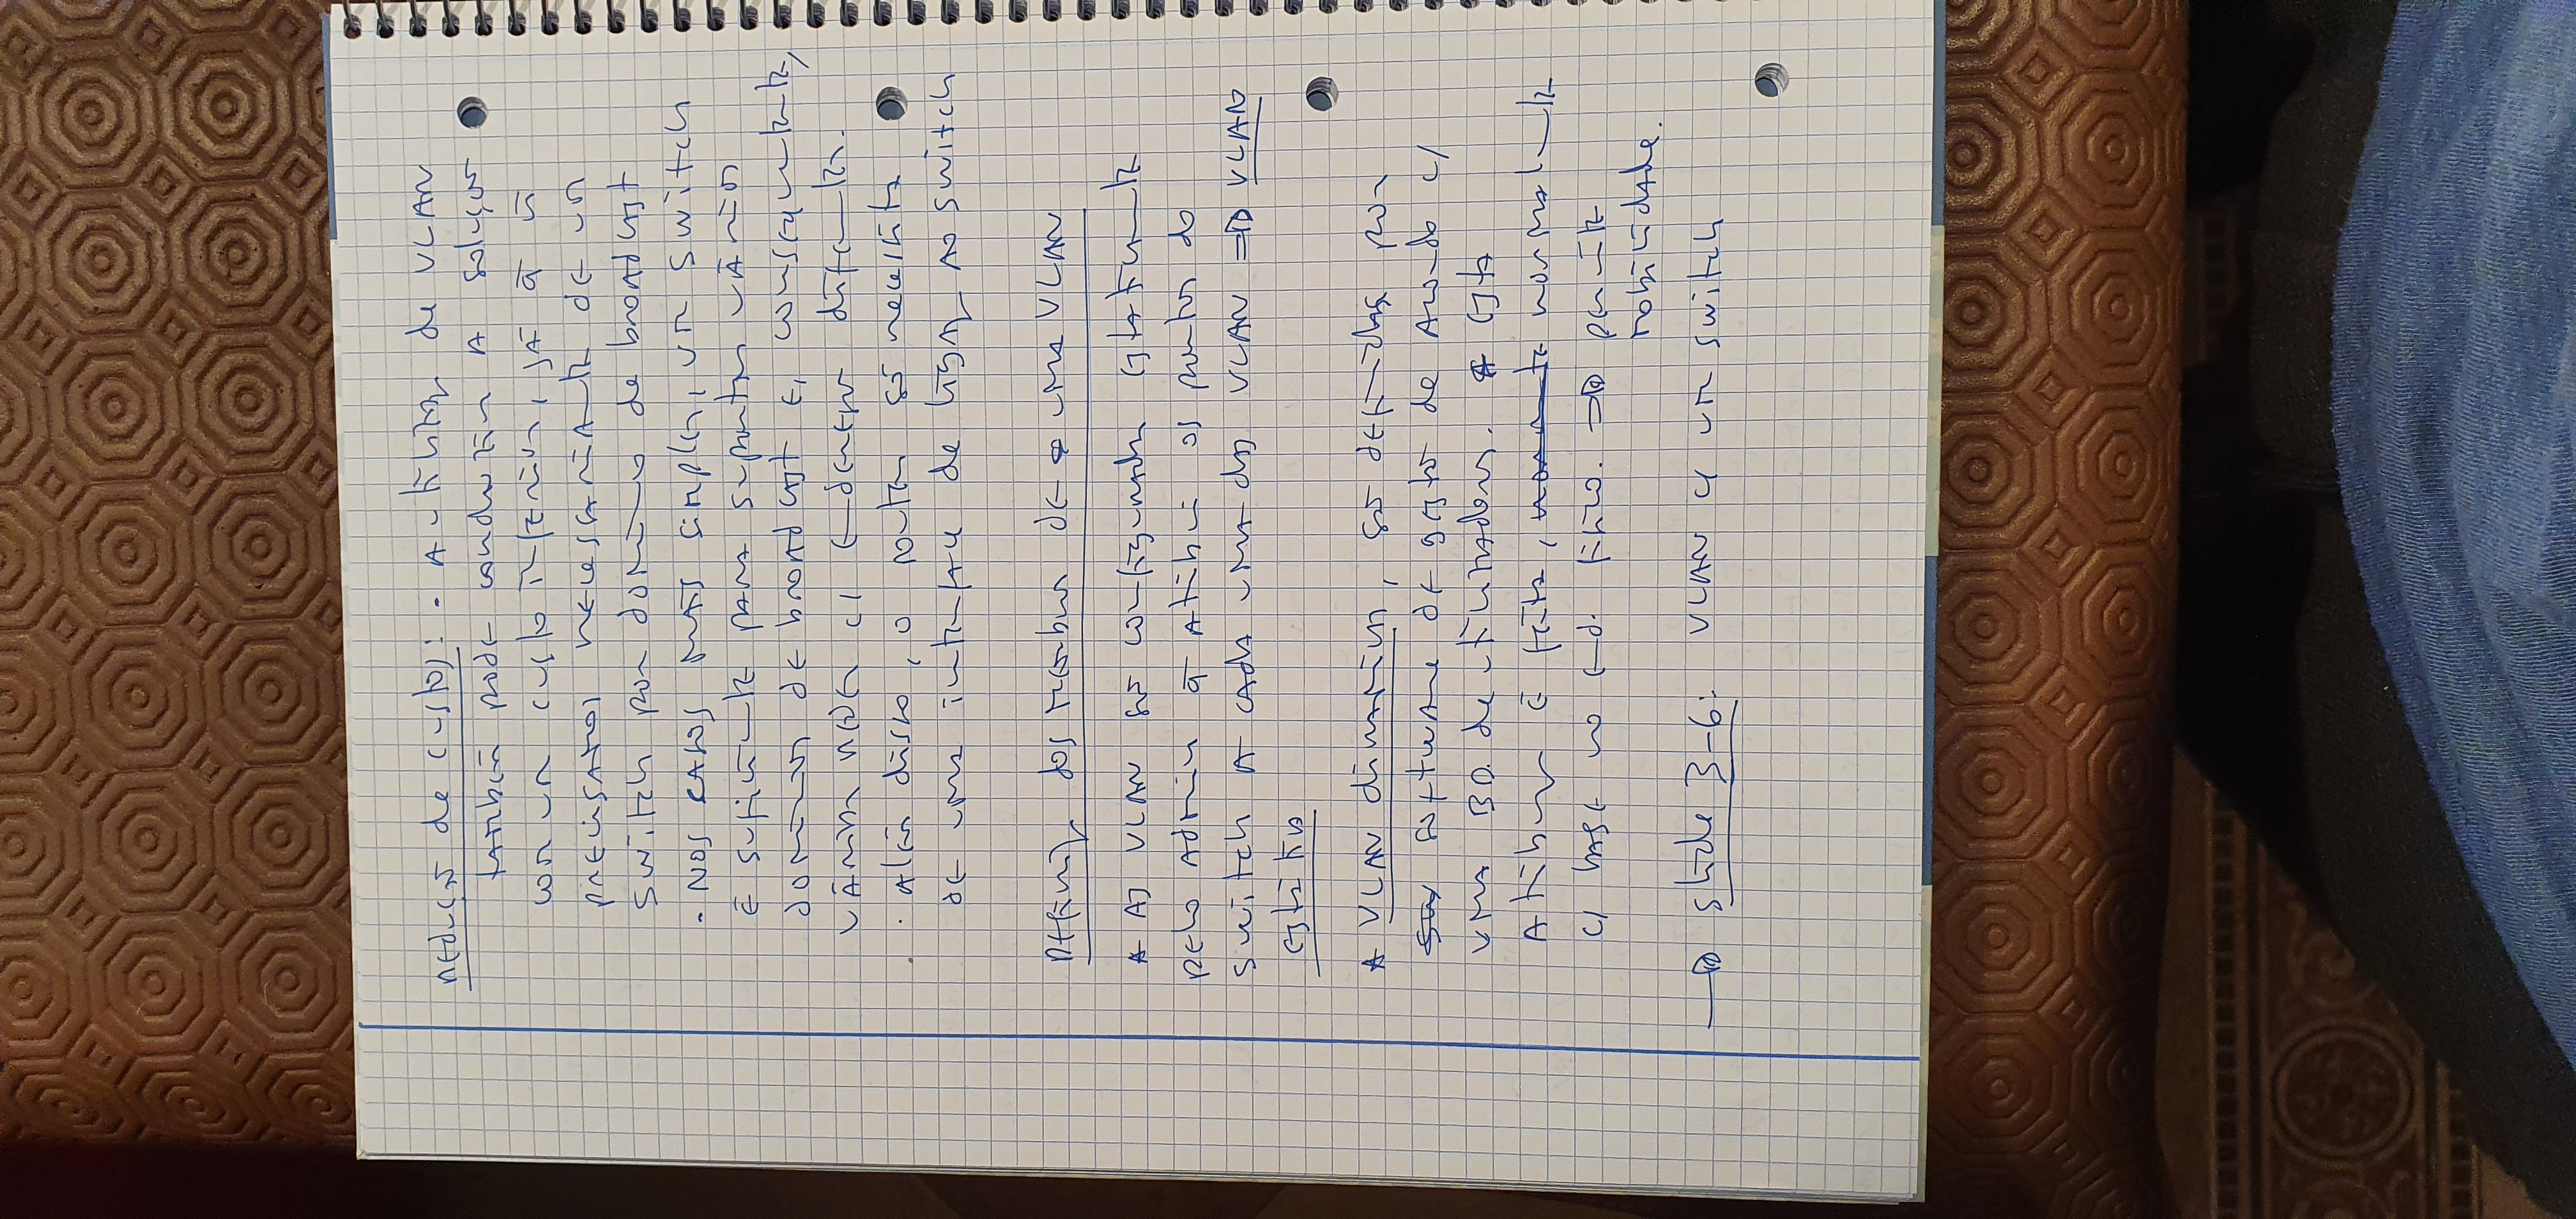 redução de custos: - A utilizaç de VLAN
também pode conduzir A solução
com um custo inferior, já q̄ ñ
precisamos necessariamente de um
switch por domínio de broadcast
- Nos casos mais simples, um switch
É suficiente para suportar vários
domínios de broadcast e, consequentemente,
várias redes c/ endereços diferentes.
- Além disso, o router só necessita
de uma interface de ligaç ao switch
Definiç dos membros de uma VLAN
* As VLAN são configuradas estaticamente
pelo Admin q̄ atribui os portos do
switch A cada uma das VLAN => VLAN
estática
* VLAN dinâmica, são definidas por
software de gestão de acordo c/
uma BD. de utilizadores. Esta
Atribuiç é feita, normalmente
c/ base no end. físico. => permite
mobilidade.
-> slide 3-6: VLAN c/ um switch